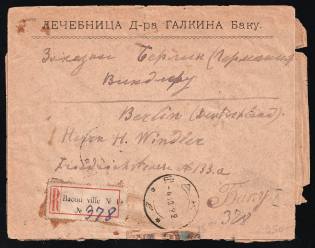 ЛЕЧЕБНИЦА Д-ра ГАЛКИНА Баку.
Заказное Берлин (Германия)
Виндлеру
Berlin (Deutschland)
Herrn H. Windler
Friedrichstrasse № 133.a
Bacou ville N 1
№ 378
Баку
378